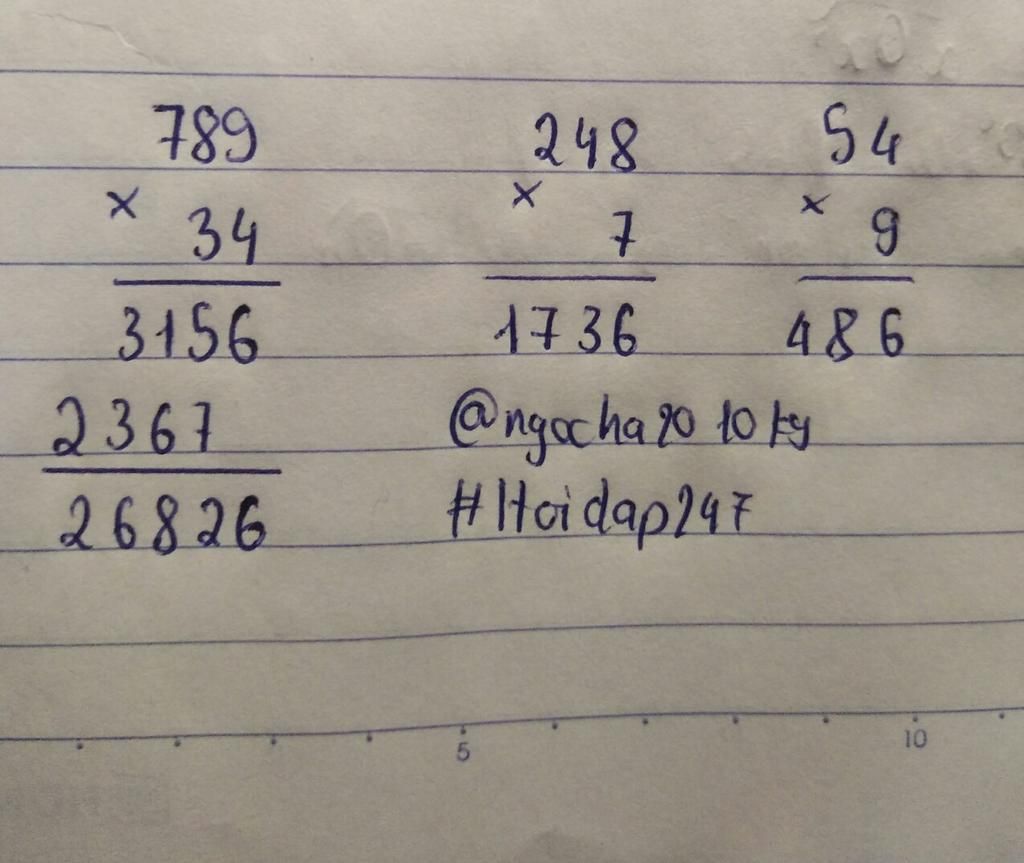 789 248 54
× 34 × 7 × 9
3156 1736 486
2367 @ngocha2010ky
26826 #Hoidap247
5 10